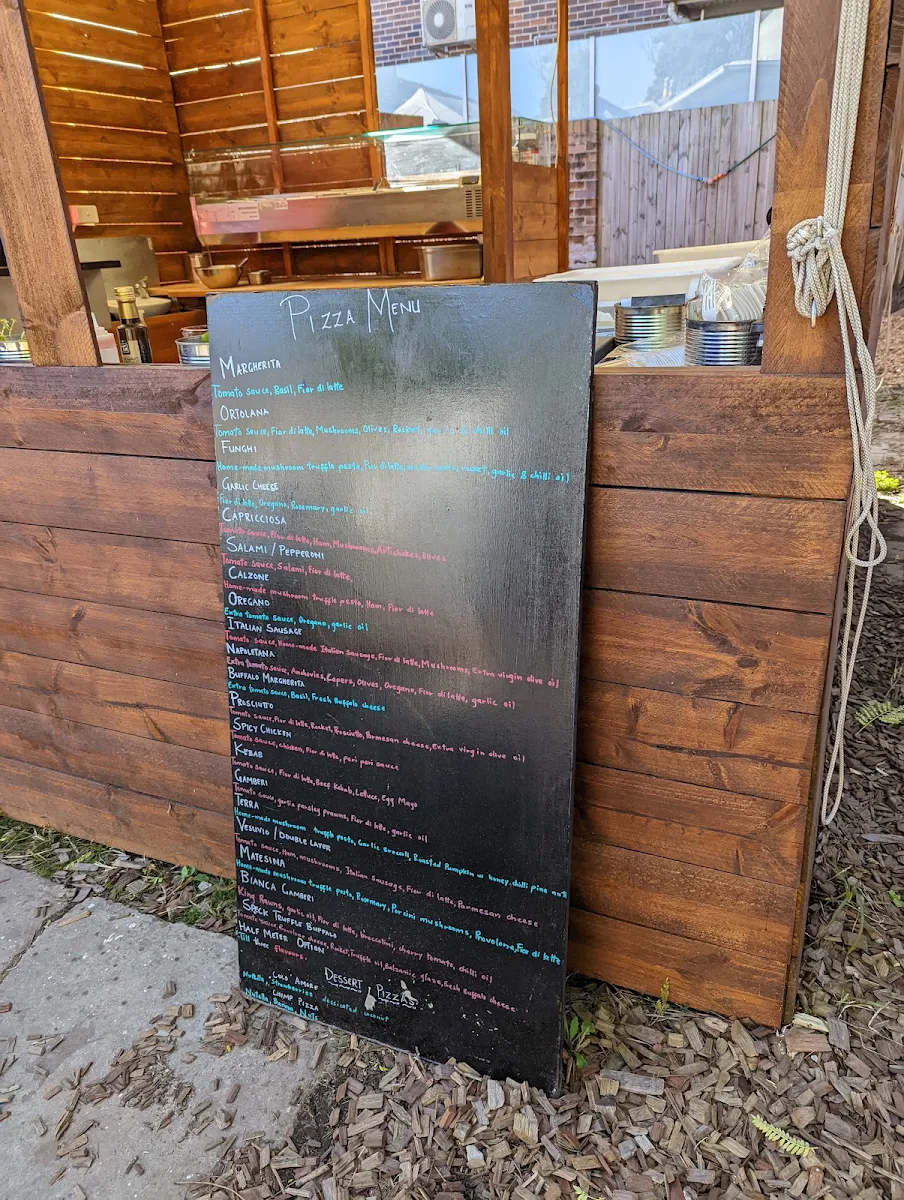 Pizza Menu
Margherita
Tomato sauce, Basil, Fior di latte
Ortolana
Tomato sauce, Fior di latte, Mushrooms, Olives, Rocket, garlic & chilli oil
Funghi
Home-made mushroom truffle pesto, Fior di latte, mushrooms, rocket, garlic & chilli oil
Garlic Cheese
Fior di latte, Oregano, Rosemary, garlic oil
Capricciosa
Tomato sauce, Fior di latte, Ham, Mushrooms, Artichokes, Olives
Salami / Pepperoni
Tomato sauce, Salami, Fior di latte,
Calzone
Home-made mushroom truffle pesto, Ham, Fior di latte
Oregano
Extra tomato sauce, Oregano, garlic oil
Italian Sausage
Tomato sauce, Home-made Italian sausage, Fior di latte, Mushrooms, Extra virgin olive oil
Napoletana
Extra tomato sauce, Anchovies, Capers, Olives, Oregano, Fior di latte, garlic oil
Buffalo Margherita
Extra tomato sauce, Basil, Fresh Buffalo cheese
Prosciutto
Tomato sauce, Fior di latte, Rocket, Prosciutto, Parmesan cheese, Extra virgin olive oil
Spicy Chicken
Tomato sauce, chicken, Fior di latte, peri peri sauce
Kebab
Tomato sauce, Fior di latte, Beef Kebab, Lettuce, Egg Mayo
Gamberi
Tomato sauce, garlic parsley prawns, Fior di latte, garlic oil
Terra
Home-made mushroom truffle pesto, Garlic broccoli, Roasted Pumpkin w honey, chilli pine nuts
Vesuvio / Double layer
Tomato sauce, Ham, mushrooms, Italian Sausage, Fior di latte, Parmesan cheese
Matesina
Home-made mushroom truffle pesto, Rosemary, Porcini mushrooms, Provolone, Fior di latte
Bianca Gamberi
King Prawns, garlic oil, Fior di latte, broccolini, cherry tomato, chilli oil
Speck Truffle Buffalo
Tomato sauce, cheese, Rocket, Truffle oil, Balsamic glaze, fresh Buffalo cheese
Half Meter Option
Till three flavours.
Dessert Pizzas
"Luka" Amore
Nutella, Strawberries, desicated coconut
Chimp Pizza
Nutella, Banana, Nuts